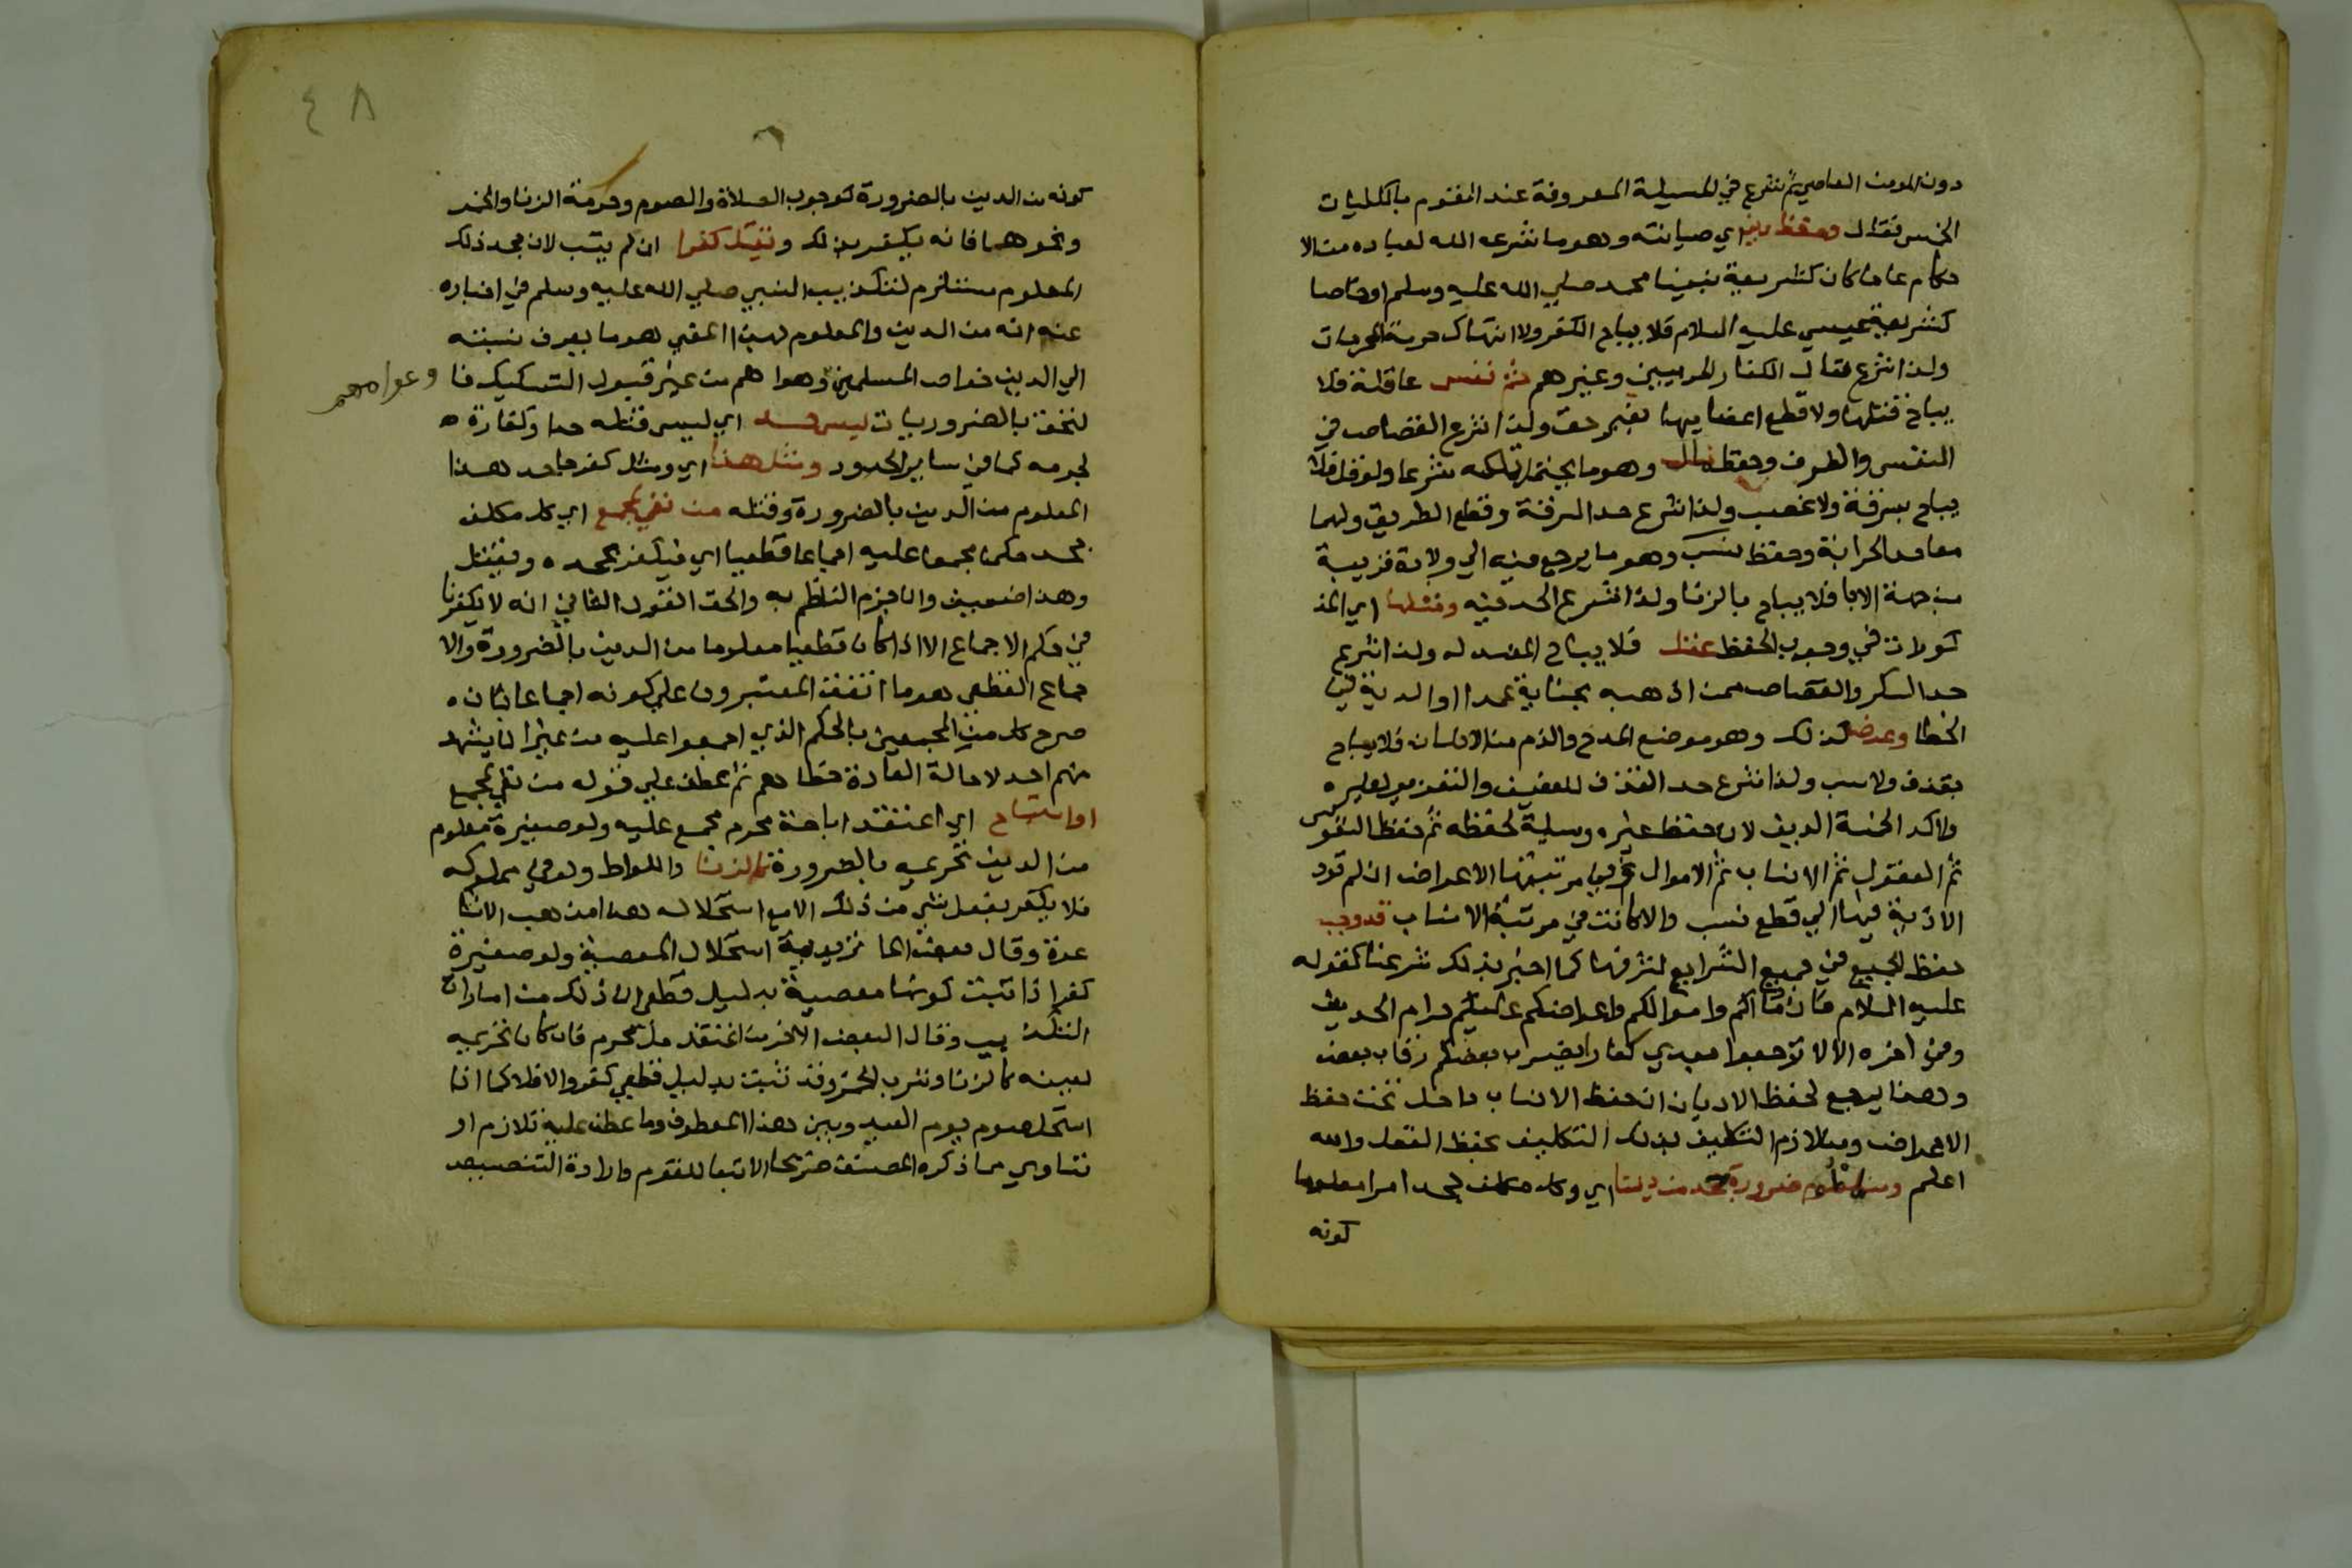 دون المومن العاصي ثم شرع في المسيلة المعروفة عند القوم بالكليات
الخمس فقال وحفظ دين اي صيانته وهو ما شرعه الله لعباده من الا
حكام عاما كان كشريعة نبينا محمد صلي الله عليه وسلم او خاصا
كشريعة عيسي عليه السلام فلا يباح الكفر ولا انتهاك حرمة المحرمات
ولذا شرع قتال الكفار الحربيين وغيرهم ثم نفس عاقلة فلا
يباح قتلها ولا قطع اعضايها بغير حق ولذا شرع القصاص في
النفس والطرف وحفظ مال وهو ما يحل تملكه شرعا ولو قل فلا
يباح بسرقة ولا غصب ولذا شرع حد السرقة وقطع الطريق ولهما
معا حد الحرابة وحفظ نسب وهو ما يرجع فيه الي ولادة قريبة
من جهة الابا فلا يباح بالزنا ولذا شرع الحد فيه ومثلها اي المذ
كورات في وجوب الحفظ عقل فلا يباح المفسد له ولذا شرع
حد السكر والقصاص ممن اذهبه بجناية عمدا او الدية في
الخطا وعرض كذلك وهو موضع المدح والذم من الانسان فلا يباح
بقذف ولا سب ولذا شرع حد القذف للعفيف والتعزير لغيره
واكد الخمسة الدين لان حفظ غيره وسيلة لحفظه ثم حفظ النفوس
ثم العقول ثم الانساب ثم الاموال وفي مرتبتها الاعراض ان لم تود
الاذية فيها الي قطع نسب والا كانت في مرتبة الانساب قد وجب
حفظ الجميع في جميع الشرايع لشرفها كما اخبر بذلك شرعنا كقوله
عليه السلام فان دماكم واموالكم واعراضكم عليكم حرام الحديث
وفي اخره الا لا ترجعوا بعدي كفارا يضرب بعضكم رقاب بعض
وهذا يرجع لحفظ الاديان اذ حفظ الانساب داخل تحت حفظ
الاعراض ومن لازم التكليف بذلك التكليف بحفظ العقل والله
اعلم ومن لمعلوم ضرورة جحد من ديننا اي وكل مكلف جحد امرا معلوما
كونه
٤٨
كونه من الدين بالضرورة كوجوب الصلاة والصوم وحرمة الزنا والخمر
ونحوهما فانه يكفر بذلك ويقتل كفرا ان لم يتب لان جحد ذلك
المعلوم مستلزم لتكذيب النبي صلي الله عليه وسلم في اخباره
عنه انه من الدين والمعلوم بهذا المعني هو ما يعرف نسبته
الي الدين خواص المسلمين وعوامهم من غير قبول التشكيك فا
وعوامهم
لتحق بالضروريات ليس حد اي ليس قتله حدا وكفارة
لجرمه كما في ساير الحدود ومثل هذا اي ومثل كفر جاحد هذا
المعلوم من الدين بالضرورة وقتله من نفي لمجمع اي كل مكلف
جحد حكما مجمعا عليه اجماعا قطعيا اي فيكفر بجحده ويقتل
وهذا ضعيف وان جزم الناظم به والحق القول الثاني انه لا يكفر نا
في حكم الاجماع الا اذا كان قطعيا معلوما من الدين بالضرورة والا
جماع القطعي هو ما اتفق المعتبرون علي كونه اجماعا بان
صرح كل من المجمعين بالحكم الذي اجمعوا عليه من غير ان يشذ
منهم احد لاحالة العادة خطاهم ثم عطف علي قوله من نفي لمجمع
او استباح اي اعتقد اباحة محرم مجمع عليه ولو صغيرة معلوم
من الدين تحريمه بالضرورة كالزنا واللواط ولو في مملوكه
فلا يكفر بفعل شي من ذلك الا مع استحلاله هذا مذهب الاشا
عرة وقال بعض الماتريدية استحلال المعصية ولو صغيرة
كفر اذا ثبت كونها معصية بدليل قطعي لان ذلك من امارات
التكذيب وقال البعض الاخر من اعتقد حل محرم فان كان تحريمه
لعينه كالزنا وشرب الخمر وقد ثبت بدليل قطعي كفر والا فلا كما اذا
استحل صوم يوم العيد وبين هذا المعطوف وما عطف عليه تلازم او
تساوي مما ذكره المصنف صريحا الا تبعا للقوم وارادة التنصيص